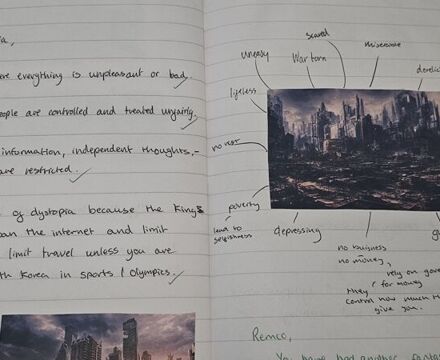 ia,
ere everything is unpleasant or bad.
eople are controlled and treated unfairly.
information, independent thoughts,
are restricted.
of dystopia because the Kings
ban the internet and limit
limit travel unless you are
th Korea in sports / Olympics.
Uneasy
scared
War torn
miserable
lifeless
no rest
poverty
lead to
selfishness
depressing
no business
no money,
rely on gov
they for money
control how much th
give you.
Remco,
You have had another fantas